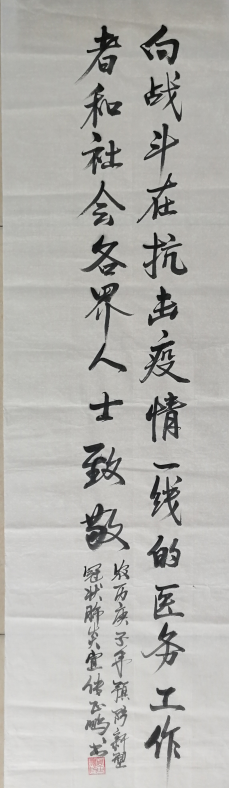 向战斗在抗击疫情一线的医务工作
者和社会各界人士致敬
庚子年预防新型
冠状肺炎宣传正鹏书